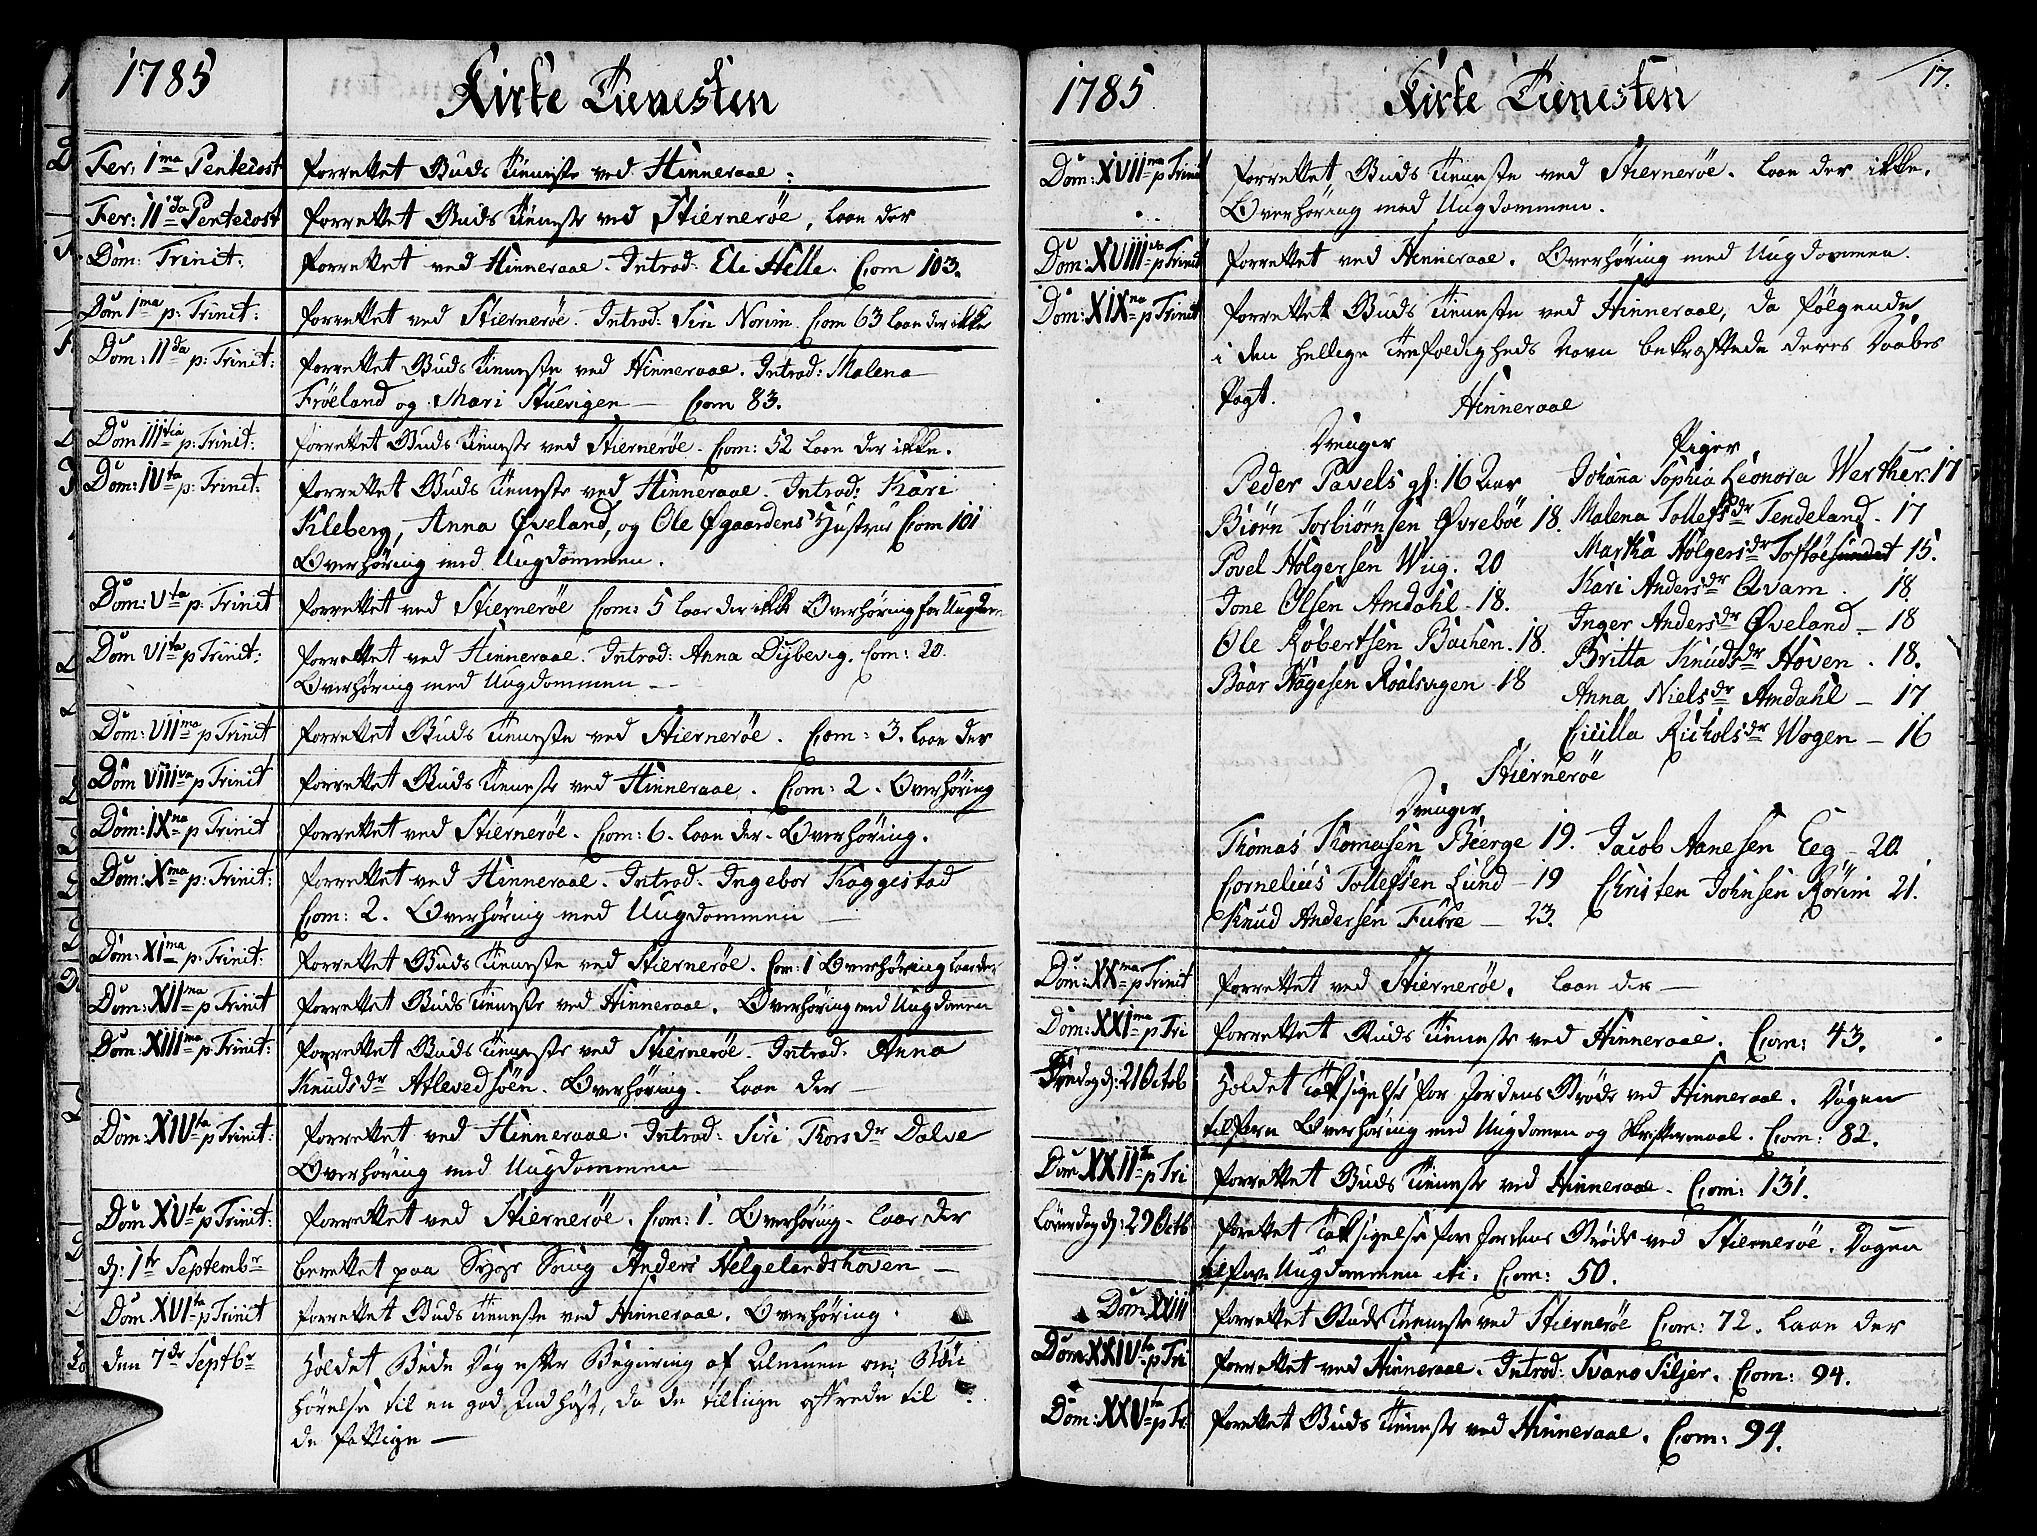 1785 Kirke Tienesten
Fer: 1ma Pentecost forrettet Guds Tieneste ved Hinneraae.
Fer: 11da Pentecost forrettet Guds Tieneste ved Stiernerøe, laae der
Dom: Trinit: forrettet ved Hinneraae. Introd: Eli Helle. Com 103.
Dom 1ma p: Trinit: forrettet ved Stiernerøe. Introd: Siri Norim. Com 63 laae der ikke
Dom: 11da p: Trinit: forrettet Guds Tieneste ved Hinneraae. Introd: Malena
Frøeland og Mari Stuevigen — Com 83.
Dom III tia p: Trinit: forrettet Guds Tieneste ved Stiernerøe. Com: 52 laae der ikke.
Dom: IVta p: Trinit: forrettet Guds Tieneste ved Hinneraae. Introd: Kari
Kleberg, Anna Øveland, og Ole Øgaardens Hustrue Com 101
Overhøring med Ungdommen.
Dom: Vta p: Trinit forrettet ved Stiernerøe Com: 5 laae der ikke Overhøring for Ungdom
Dom VIta p Trinit: forrettet ved Hinneraae. Introd: Anna Dybevig. Com: 20.
Overhøring med Ungdommen — —
Dom: VIIma p Trinit forrettet Guds Tieneste ved Stiernerøe. Com: 3. laae der
Dom VIIIva p Trinit forrettet Guds Tieneste ved Hinneraae. Com: 2. Overhøring
Dom: IXna p Trinit forrettet ved Stiernerøe. Com: 6. laae der. Overhøring.
Dom: Xma p: Trinit: forrettet ved Hinneraae. Introd. Ingebor Kaggestad
Com: 2. Overhøring med Ungdommen —
Dom: XIma p: Trinit: forrettet Guds Tieneste ved Stiernerøe. Com: 1 Overhøring laae der
Dom: XIIma p Trinit forrettet Guds Tieneste ved Hinneraae. Overhøring med Ungdomen
Dom: XIIIma p Trinit: forrettet Guds Tieneste ved Stiernerøe. Introd. Anna
Knudsdr Atlevedsöen. Overhøring. laae der —
Dom: XIVta p Trinit: forrettet ved Hinneraae. Introd: Siri Thorsdr Dalve
Overhøring med Ungdommen —
Dom XVta p Trinit: forrettet ved Stiernerøe. Com: 1. Overhøring. laae der
d: 1te Septembr berettet paa Syge Seng Anders Helgelandshoven —
Dom XVIta p Trinit forrettet Guds Tieneste ved Hinneraae. Overhøring.
den 7de Septbr Holdet Bede Dag efter Begiering af Almuen om Bön
hörelse til en god Indhöst, da de tillige offrede til
de fattige —
17.
1785 Kirke Tienesten
Dom: XVIIma p Trinit forrettet Guds Tieneste ved Stiernerøe. laae der ikke.
Overhøring med Ungdommen.
Dom: XVIIIva p Trinit forrettet ved Hinneraae. Overhøring med Ungdommen.
Dom: XIXna p Trinit forrettet Guds Tieneste ved Hinneraae, da følgende,
i den hellige Treefoldigheds Navn bekræftede deres Daabes
Pagt. Hinneraae
Drenger Piger
Peder Pavels gl: 16 Aar Johanna Sophia Leonora Werther. 17
Biørn Torbiørnsen Øvrebøe 18. Malena Tollefsdr Tendeland. 17
Povel Holgersen Wiig. 20 Martha Holgersdr Toftøesundet 15.
Jone Olsen Amdahl. 18. Kari Andersdr Qvam. 18.
Ole Robertsen Bachen. 18. Inger Andersdr Øveland. 18
Baar Aagesen Roalsvigen. 18 Britta Knudsdr Hoven. 18.
Anna Nielsdr Amdahl — 17
Cicilla Richolsdr Wogen — 16
Stiernerøe
Drenger
Thomas Thomasen Bierge 19. Jacob Aanesen Eeg — 20.
Cornelius Tollefsen Lund — 19 Christen Johnsen Rørim 21.
Knud Andersen Furre — 23.
Dom: XXma p Trinit forrettet ved Stiernerøe. laae der —
Dom: XXIma p Tri forrettet Guds Tieneste ved Hinneraae. Com: 43.
d: 21 Octob Holdet Taksigelse for Jordens Grøde ved Hinneraae. Dagen
tilforn Overhøring med Ungdomen og Skriftemaal. Com: 82.
Dom XXII p Tri forrettet Guds Tieneste ved Hinneraae. Com: 131.
Løverdag d: 29 Octb forrettet Taksigelse for Jordens Grøde ved Stiernerøe. Dagen
tilforn Ungdommen etc. Com: 50.
Dom XXIII forrettet Guds Tieneste ved Stiernerøe Com: 72. laae der
Dom XXIVta p Tri forrettet ved Hinneraae. Introd: Svano Siljer. Com: 94.
Dom: XXVta p Tr. forrettet Guds Tieneste ved Hinneraae. Com: 94.